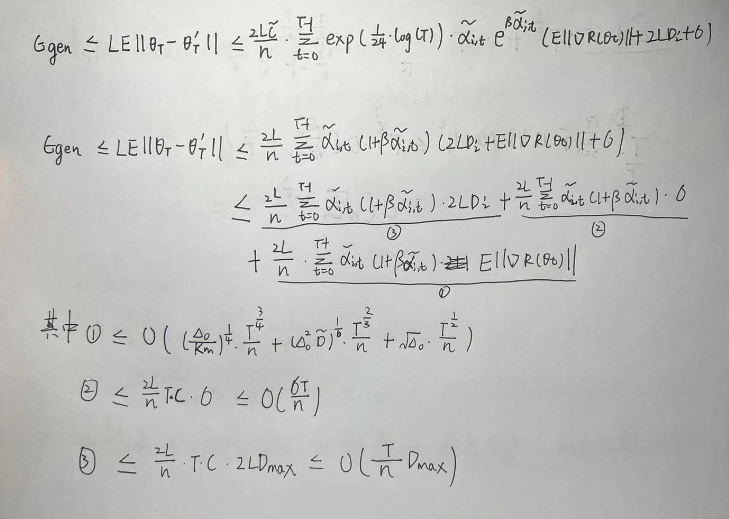 Ggen ≤ LE||θ_T - θ'_T|| ≤ 2Lc̃/n · Σ_{t=0}^{T-1} exp(1/24 · log(T)) · α̃_{i,t} e^{βα̃_{i,t}} (E||∇R(θt)|| + 2LD_i + 6)
Ggen ≤ LE||θ_T - θ'_T|| ≤ 2L/n Σ_{t=0}^{T-1} α̃_{i,t} (1+βα̃_{i,t}) (2LD_i + E||∇R(θt)|| + 6)
≤ 2L/n Σ_{t=0}^{T-1} α̃_{i,t} (1+βα̃_{i,t}) · 2LD_i + 2L/n Σ_{t=0}^{T-1} α̃_{i,t} (1+βα̃_{i,t}) · 6
③ ②
+ 2L/n · Σ_{t=0}^{T-1} α̃_{i,t} (1+βα̃_{i,t}) · E||∇R(θt)||
①
其中 ① ≤ O( (Δ₀/Km)^{1/4} · T^{3/4}/n + (Δ₀² D̃)^{1/6} · T^{2/3}/n + √Δ₀ · T^{1/2}/n )
② ≤ 2L/n T·C · 6 ≤ O(6T/n)
③ ≤ 2L/n · T · C · 2LDmax ≤ O(T/n Dmax)